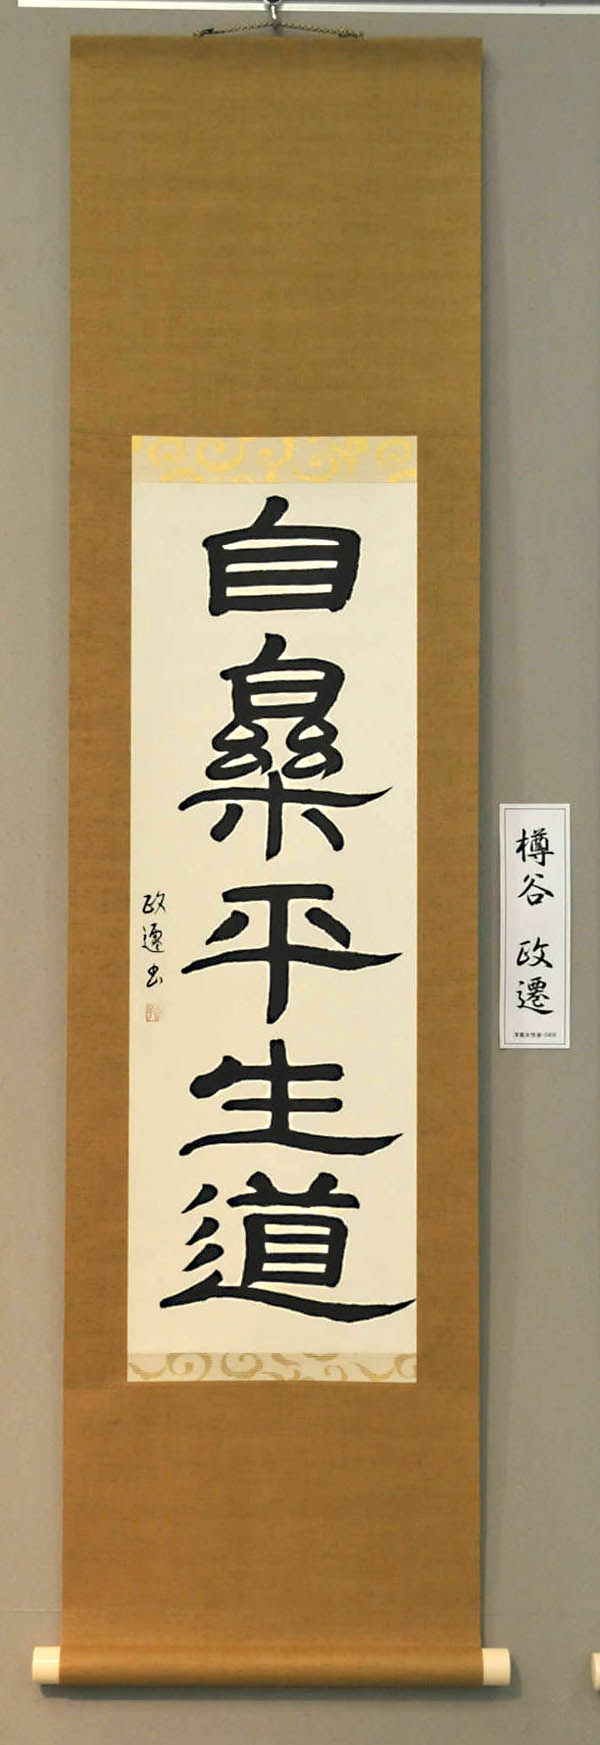 自樂平生道
政遷書
樽谷 政遷